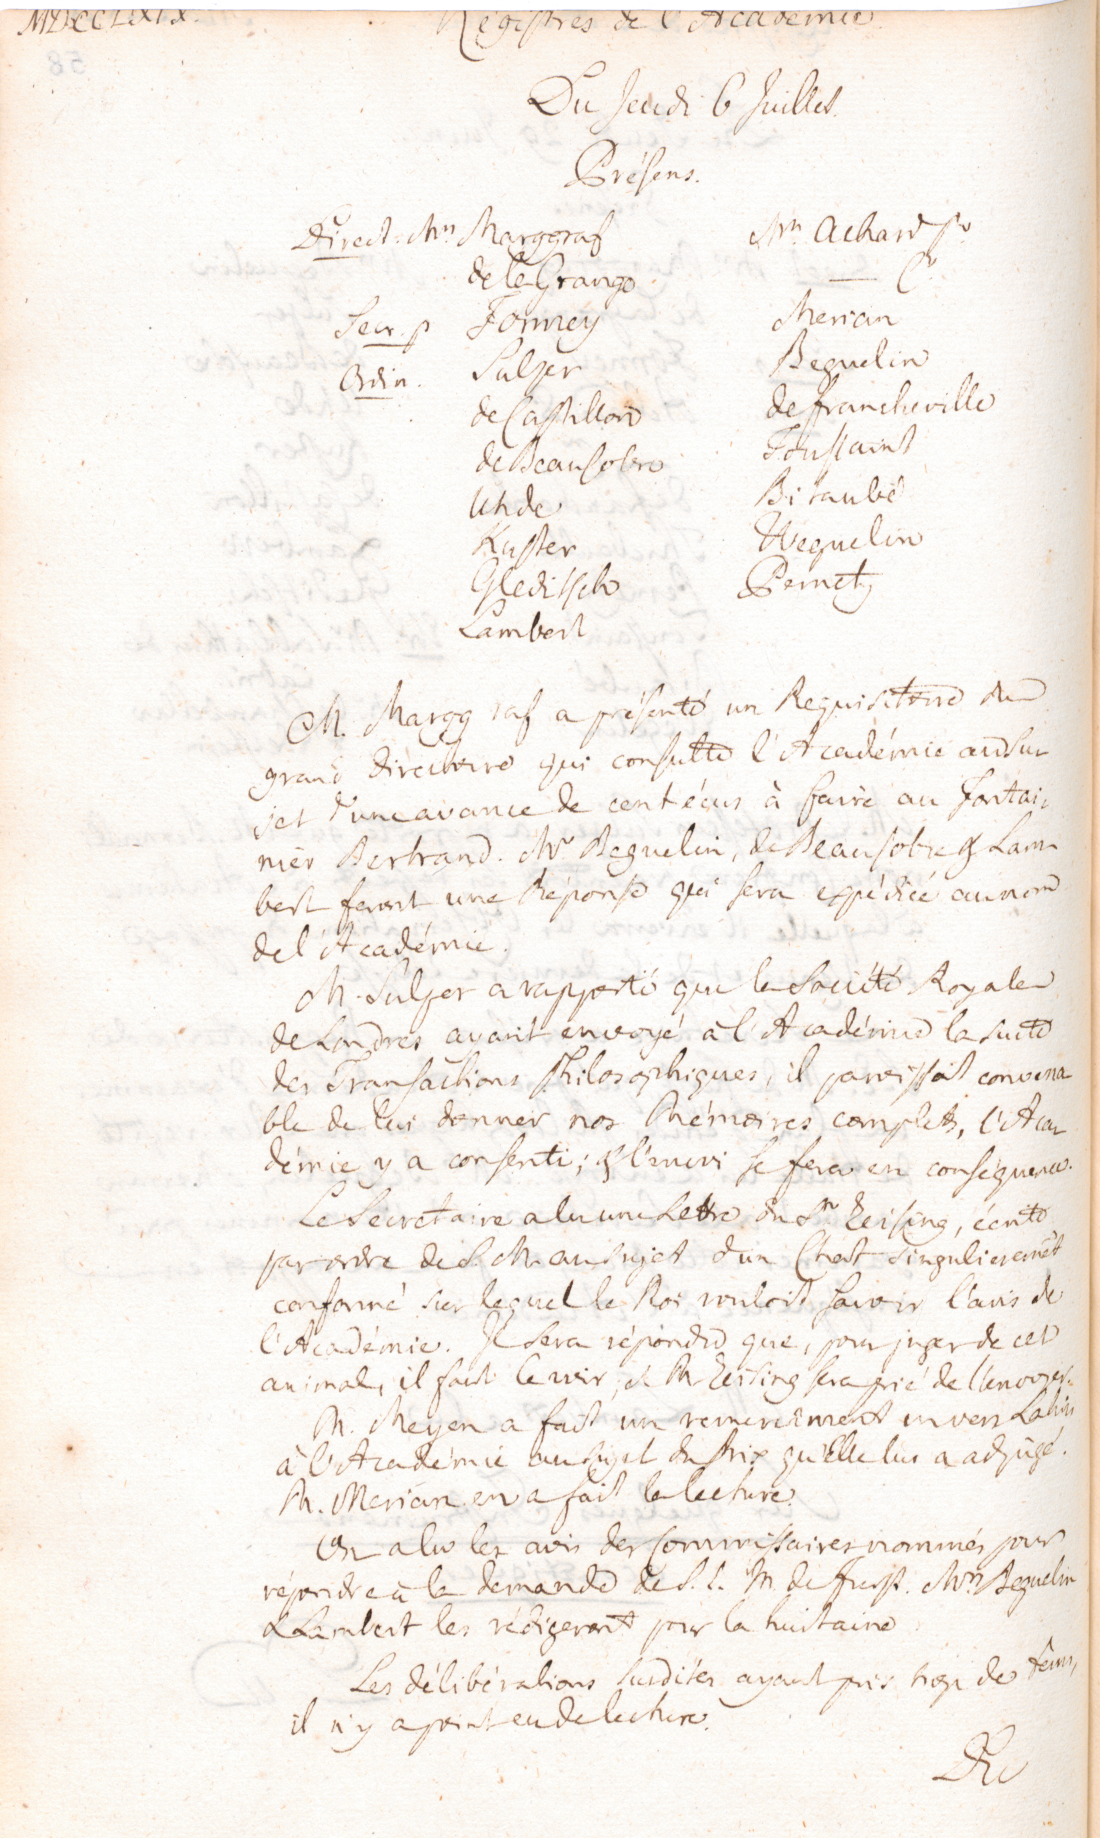 MDCCLXIX.
Régistres de l'Academie
Du Jeudi 6 Juillet.
Présens.
Direct. Mrs Marggraf
de la Grange
Secr. p Formey
Ordin. Sulzer
de Castillon
de Beausobre
Uhde
Kuster
Gleditsch
Lambert
Mrs Achard Pr
— Cr
Merian
Beguelin
de francheville
Toussaint
Bitaubé
Weguelin
Pernety
M. Marggraf a présenté un Requisitoire du
grand directoire qui consulte l'Académie au su-
jet d'une avance de cent écus à faire au Fontai-
nier Bertrand. Mrs Beguelin, de Beausobre & Lam-
bert feront une Réponse qui sera expédiée au nom
de l'Académie.
M. Sulzer a rapporté que la Société Royale
de Londres ayant envoyé à l'Académie la suite
des Transactions Philosophiques, il paroissoit convena-
ble de lui donner nos Mémoires complets, l'Aca-
démie y a consenti; & l'envoi se fera en conséquence.
Le Secretaire a lu une Lettre du Sr Zeising, écrite
par ordre de S. M. au sujet d'un Chat singulierement
conformé sur lequel le Roi vouloit savoir l'avis de
l'Académie. Il sera répondu que, pour juger de cet
animal, il faut le voir, & M. Zeising sera prié de l'envoyer.
M. Meyen a fait un remerciement en vers Latins
à l'Académie au sujet du Prix qu'Elle lui a adjugé.
M. Merian en a fait la lecture.
On a lu les avis des Commissaires nommés pour
répondre à la demande de S. E. M. de Mrs Beguelin
& Lambert les rédigeront pour la huitaine
Les délibérations susdites ayant pris trop de tems,
il n'y a point eu de lecture.
Du